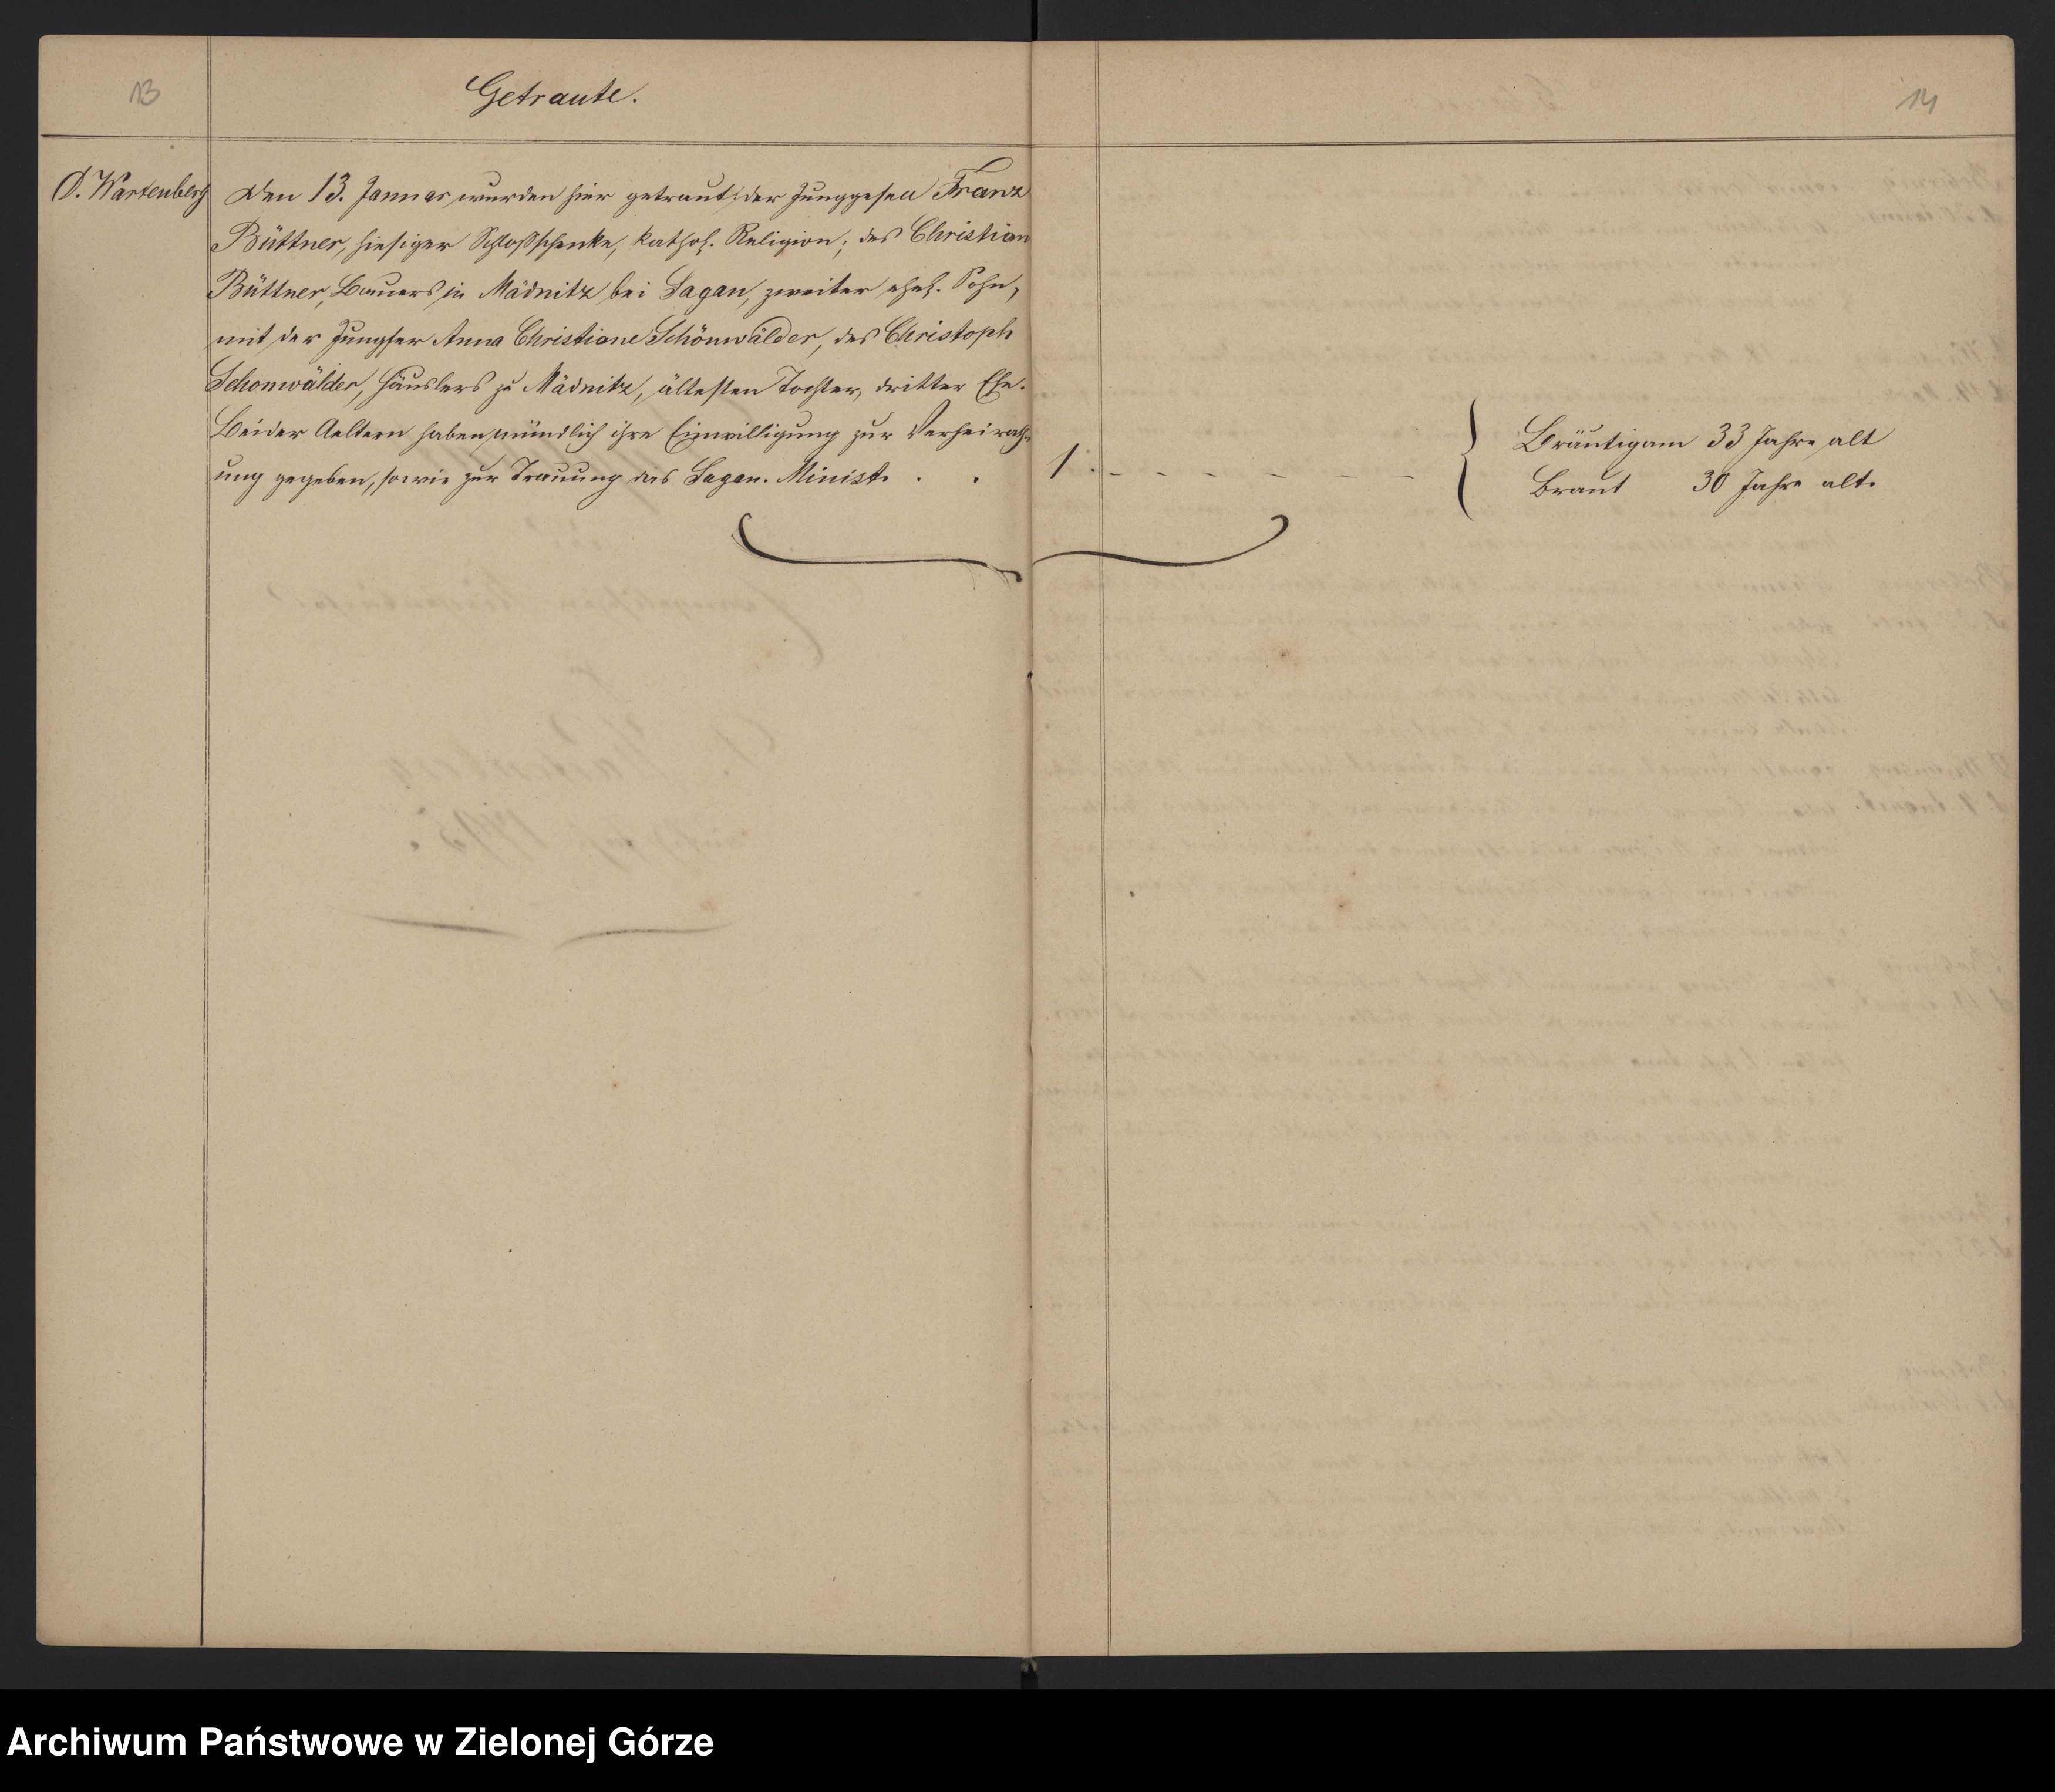 13
Getraute.
14
D. Wartenberg
Den 13. Januar wurden hier getraut: der Junggesell Franz
Büttner, hiesiger Schloßschenke, kathol. Religion; des Christian
Büttner, Bauers in Mädnitz bei Sagan, zweiter ehel. Sohn,
mit der Jungfer Anna Christiane Schönwälder, des Christoph
Schonwälder, Häuslers zu Mädnitz, ältesten Tochter, dritter Ehe.
Beider Aeltern haben mündlich ihre Einwilligung zur Verheirath-
ung gegeben, sowie zur Trauung das Sagan. Minist. . . 1.
Bräutigam 33 Jahre alt
Braut 30 Jahre alt.
Archiwum Państwowe w Zielonej Górze